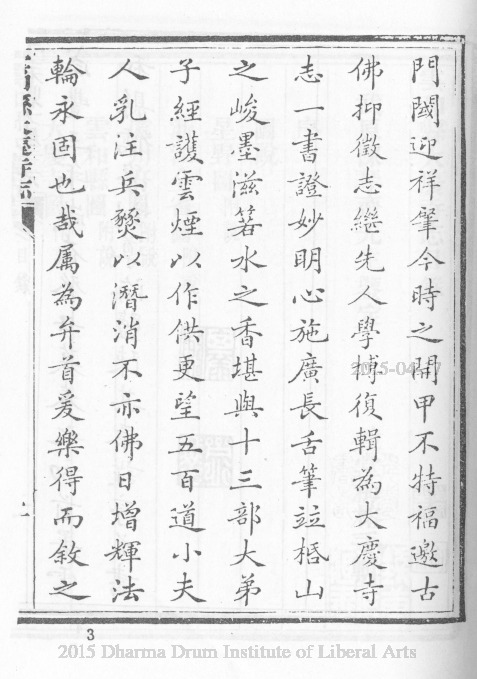 門閥迎祥肇今時之開甲不特福邀古
佛抑徵志繼先人學摶復輯為大慶寺
志一書證妙明心施廣長舌筆竝柢山
之峻墨滋箬水之香堪與十三部大弟
子經護雲煙以作供更望五百道小夫
人乳注兵燹以潛消不亦佛日增輝法
輪永固也哉属為弁首爰樂得而敘之
3
2015-04-
2015 Dharma Drum Institute of Liberal Arts